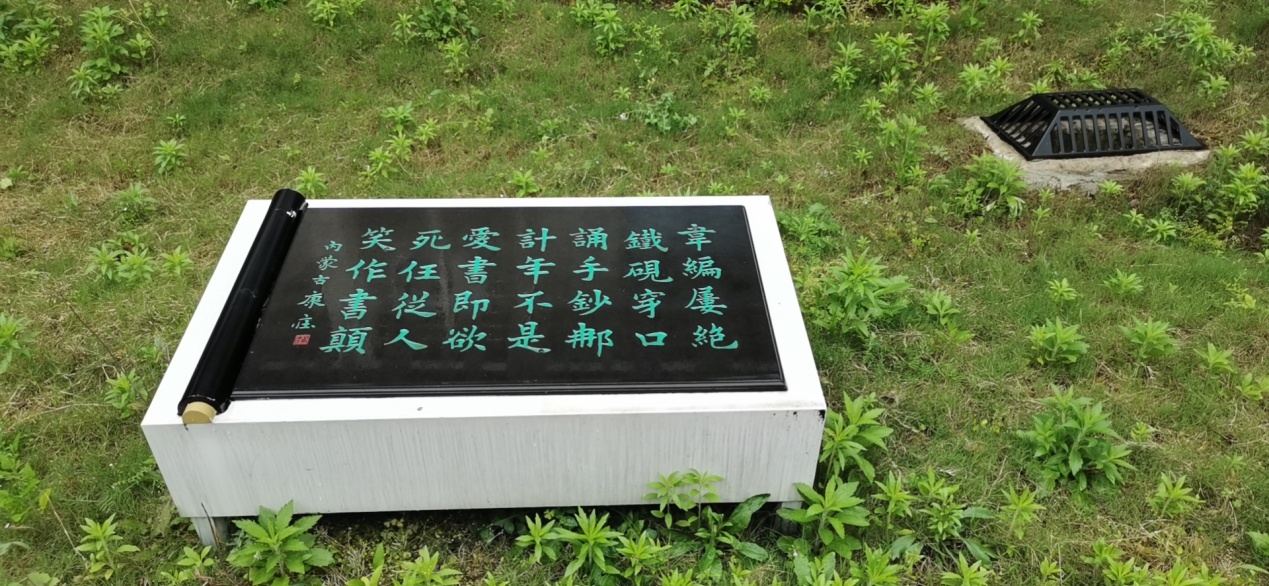 韋編屢絶
鐵硯穿口
誦手鈔𨚗
計年不是
愛書即欲
死任從人
笑作書顛
內蒙古康莊